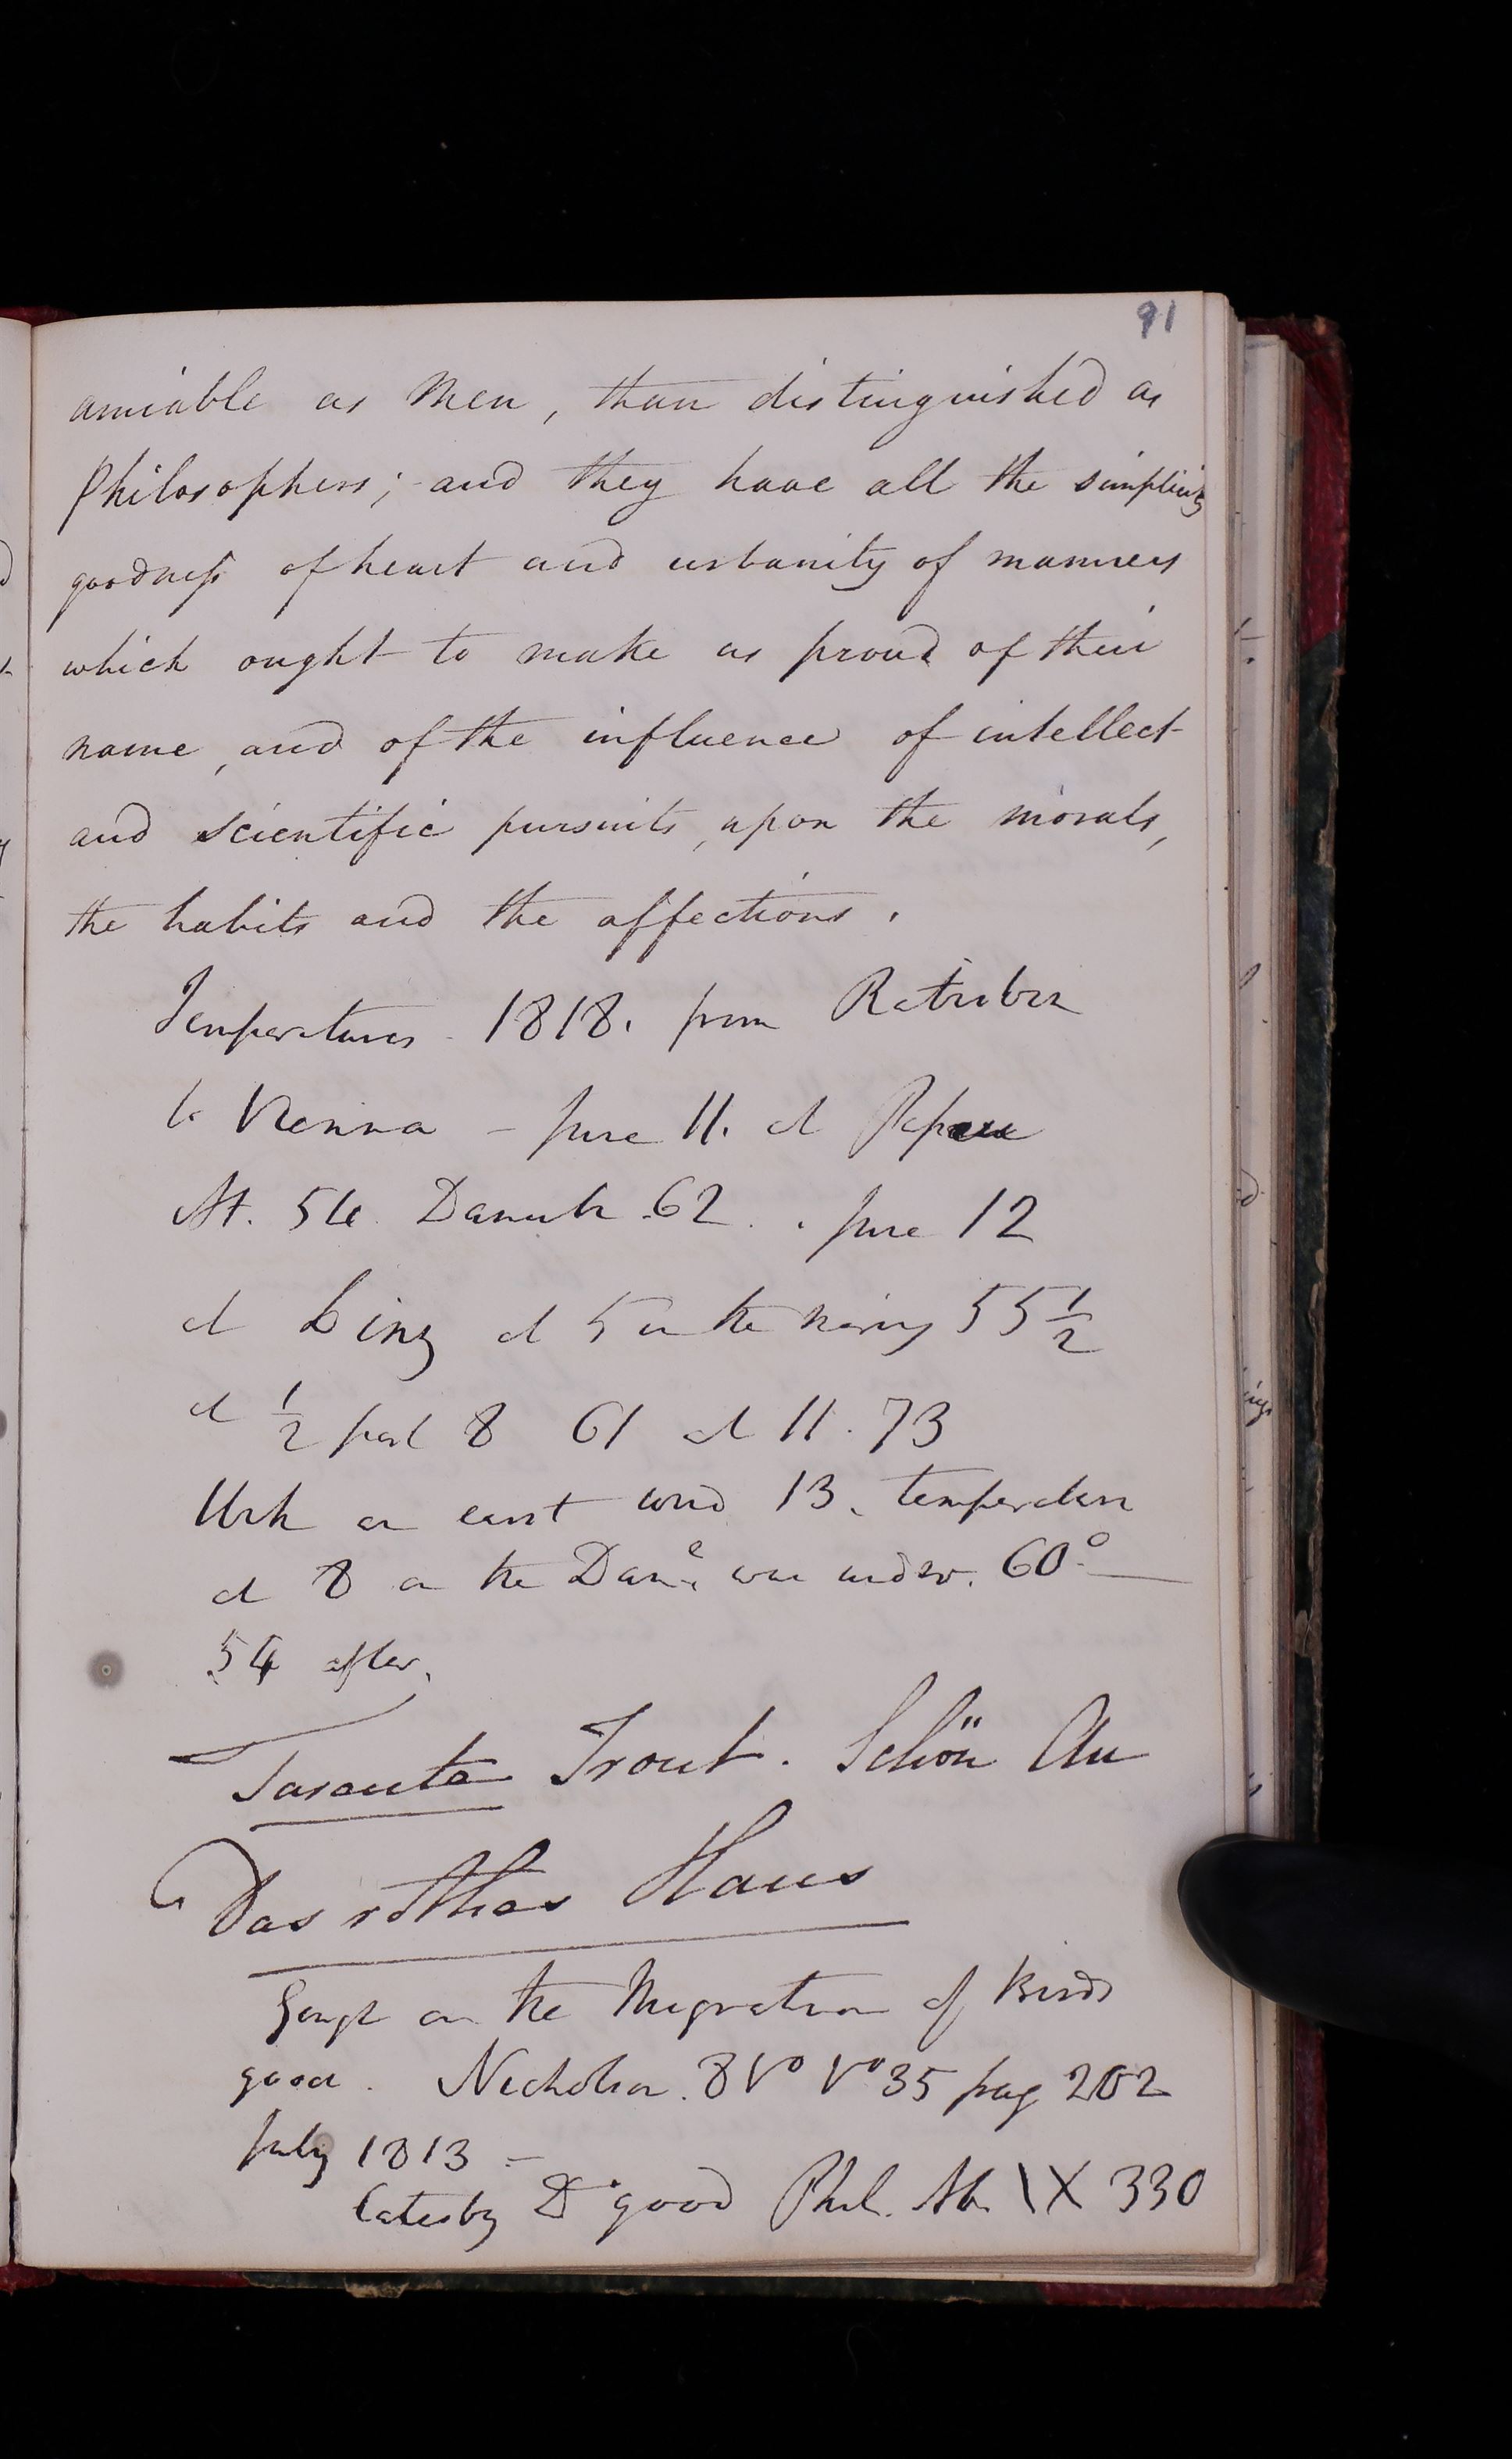 91
amiable as Men, than distinguished as
Philosophers; and they have all the simplicity
goodness of heart and urbanity of manners
which ought to make us proud of their
name, and of the influence of intellect
and scientific pursuits, upon the morals,
the habits and the affections.
Temperatures - 1818. from Ratisbon
to Vienna - June 11. at Passau
At. 54 Danube 62. June 12
at Linz at 5 in the morning 55 1/2
at 1/2 past 8 61 at 11. 73
With an east wind 13. temperature
at 8 on the Dane. was under. 60°
54 after.
Trout. Schön Au
Das rothes Haus
on the Migration of Birds
good. Nicholson. 8vo Vo 35 pag 202
July 1813 -
Catesby Do good Phil. Ab. IX 330